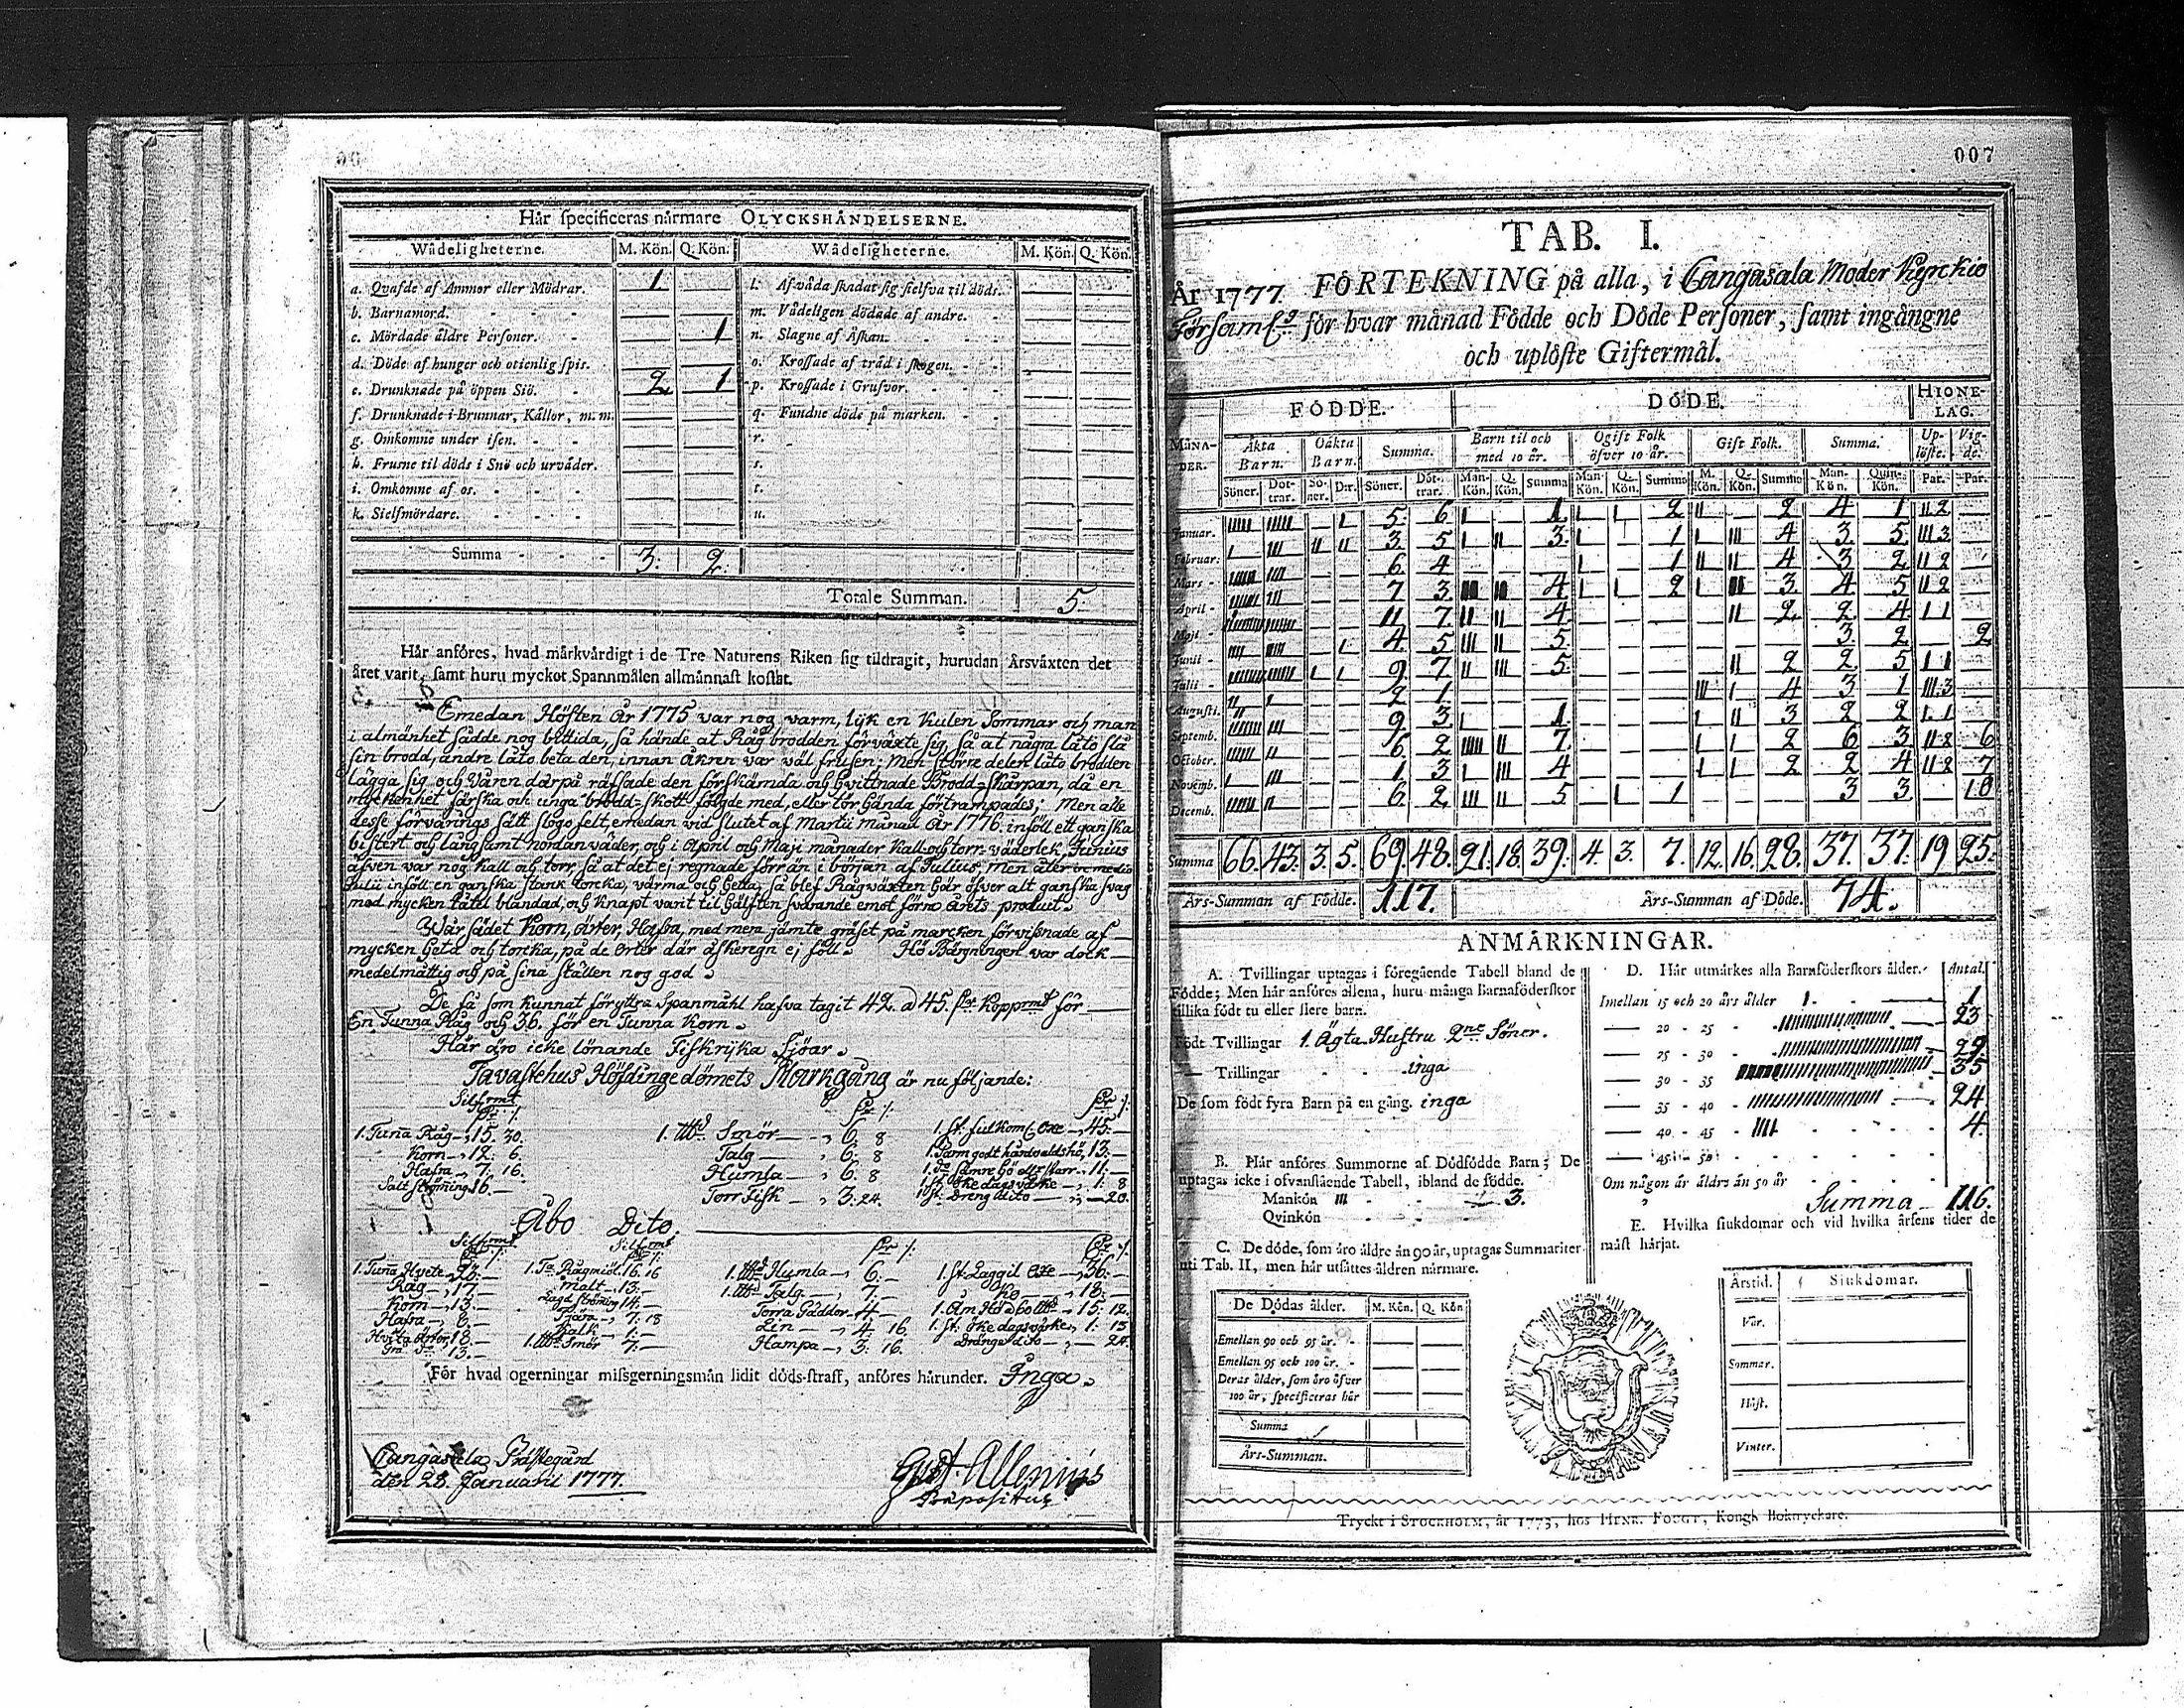 Här specificeras närmare OLYCKSHÄNDELSERNE.
Wådeligheterne. M. Kön. Q. Kön. Wådeligheterne. M. Kön. Q. Kön.
a. Qvafde af Ammor eller Mödrar. 1 l. Af våda skadat sig sielfva til döds.
b. Barnamord. m. Vådeligen dödade af andre.
c. Mördade äldre Personer. 1 n. Slagne af Åskan.
d. Döde af hunger och otienlig spis. o. Krossade af träd i skogen.
e. Drunknade på öppen Siö. 2 1 p. Krossade i Grufvor.
f. Drunknade i Brunnar, Källor, m. m. q. Fundne döde på marken.
g. Omkomne under isen. r.
h. Frusne til döds i Snö och urväder. s.
i. Omkomne af os. t.
k. Sielfmördare. u.
Summa 3. 2.
Totale Summan. 5.
Här anföres, hvad märkvärdigt i de Tre Naturens Riken sig tildragit, hurudan Årsväxten det
året varit, samt huru myckot Spannmålen allmännast kostat.
Emedan Hösten År 1775 var nog varm, lijk en Kulen Sommar och man
i almänhet sådde nog bittida, så hände at Råg brodden förväxte sig, så at någre läto slå
sin brodd, andre läto beta den, innan åkren var väl frusen; Men större delen läto brodden
lägga sig, och Våren därpå räfsade den förskämda och hvittnade Brodd-skarpan, då en
myckenhet färska och unga brodd-skott följde med, eller tör hända förtrampades; Men alle
desse förvarings sätt slogo felt emedan vid slutet af Martii månad År 1776. inföll ett ganska
bistert och långsamt nordanväder, och i April och Maji månader kall och torr väderlek, Junius
äfven var nog kall och torr, så at det ej regnade förr än i början af Julius, men
Julii inföll en ganska stark torcka, värma och hetta, så blef Rågväxten här öfver alt ganska svag
med mycken blandad, och knapt varit til hälften svarande emot förra årets product.
Wår sädet Korn, ärter, Hafra, med mera jämte gräset på marcken förvissnade af
mycken heta och torcka, på de orter där åskeregn ej föll. Hö Bärgningen var dock
medelmåttig och på sina ställen nog god.
De få som kunnat föryttra Spanmåhl hafva tagit 42. a 45. Kopprmt för
En Tunna Råg och 36. för en Tunna Korn.
Här äro icke lönande Fiskrijka Sjöar.
Tavastehus Höfdinge dömets Markgång är nu följande:
1. Tuna Råg 15. 30. 1. Smör 6. 8 1. st. fulkoml. Oxe 45.
Korn 12. 6. Talg 6. 8 1. Parm godt hårdvaldshö, 13.
Hafra 7. 16. Humla 6. 8 1. do sämre hö 11.
Salt Strömming 16. Torr Fisk 3. 24. 1. st. öke dagsvärke 1. 8
1. st. Dreng dito 20.
Åbo Dito.
1. Tuna Hvete 23. 16. 16 1. Humla 6. 1. st. Laggil Oxe 36.
Råg 17. Malt 13. 1. Talg 7. Ko 18.
Korn 13. 14. Torra Gäddor 4. 15. 12.
Hafra 8. Tjära 7. 18 Lin 4. 16. 1. st. öke dagsvärke 1. 13
Hvita ärter 18. Kalk 1. Hampa 3. 16. Dränge dito 24.
Grå do 13. Smör 7.
För hvad ogerningar missgerningsmän lidit döds-straff, anföres härunder. Inga.
Cangasala Prästegård
den 28. Januarii 1777.
Gust. Allenius
Præpositus.
007
TAB. I.
År 1777 FÖRTEKNING på alla, i Cangasala Moder Kyrckio
Församl:g för hvar månad Födde och Döde Personer, samt ingångne
och uplöste Giftermål.
MÅNADER. FÖDDE. DÖDE. HIONELAG.
Äkta Barn. Oäkta Barn. Summa. Barn til och med 10 år. Ogift Folk öfver 10 år. Gift Folk. Summa. Uplöste. Vigde.
Söner. Döttrar. Söner. D:r. Söner. Döttrar. Man-Kön. Q. Kön. Summa Man-Kön. Q. Kön. Summa M. Kön. Q. Kön. Summa Man-Kön. Quin-Kön. Par. Par.
Januar. 5. 6 1. 2 2 4 1 2
Februar. 3. 5 3. 1 4 3. 5. 3
Mars 6. 4 1 4 3 2 2
April 7 3 4 2 3. 4 5 2
Maji 11 7. 4 2. 2 4 1
Junii 4. 5 5 3 2 2
Julii 9 7 5 2 2 5 1
Augusti. 2 1 4 3 1 3
Septemb. 9 3 1 3 2 2 1
October. 6 2 7 2 6 3 2 6
Novemb. 1 3 4 2 2 4 2 7
Decemb. 6 2 5 1 3 3 10
Summa 66. 43. 3. 5. 69. 48. 21. 18. 39. 4. 3. 7. 12. 16. 28. 37. 37. 19 25.
Års-Summan af Födde. 117. Års-Summan af Döde. 74.
ANMÄRKNINGAR.
A. Tvillingar uptagas i föregående Tabell bland de
Födde; Men här anföres allena, huru många Barnaföderskor
tillika födt tu eller flere barn.
Födt Tvillingar 1. Ägta Hustru 2ne Söner.
Trillingar inga
De som födt fyra Barn på en gång. inga
B. Här anföres Summorne af Dödfödde Barn; De
uptagas icke i ofvanstående Tabell, ibland de födde.
Mankön III 3.
Qvinkön
C. De döde, som äro äldre än 90 år, uptagas Summariter
uti Tab. II, men här utsättes åldren närmare.
De Dödas ålder. M. Kön. Q. Kön
Emellan 90 och 95 år.
Emellan 95 och 100 år.
Deras ålder, som äro öfver
100 år, specificeras här
Summa
Års-Summan.
D. Här utmärkes alla Barnföderskors ålder. Antal.
Imellan 15 och 20 års ålder 1
20 - 25 23
25 - 30 29
30 - 35 35
35 - 40 24
40 - 45 4.
45 - 50
Om någon är äldre än 50 år
Summa 116.
E. Hvilka siukdomar och vid hvilka årsens tider de
mäst härjat.
Årstid. Siukdomar.
Vår.
Sommar.
Höst.
Vinter.
Tryckt i STOCKHOLM, år 1773, hos HENR. FOUGT, Kongl. Boktryckare.